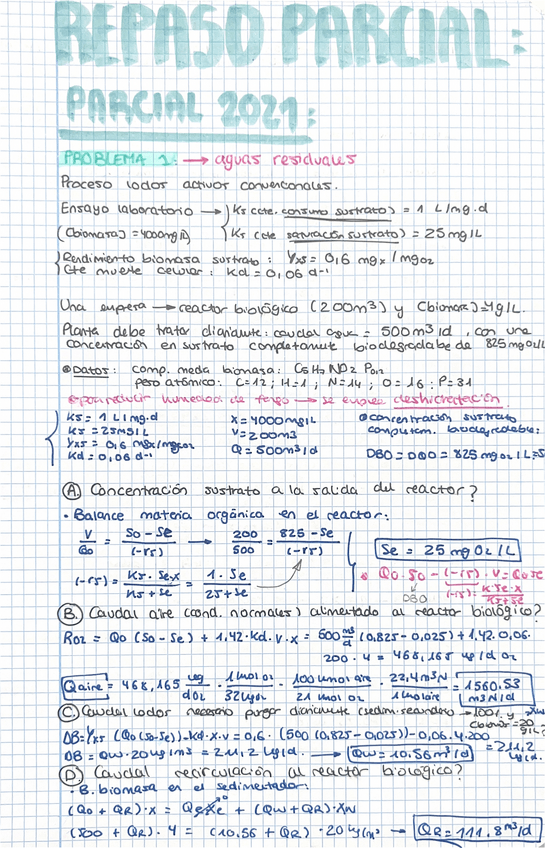 REPASO PARCIAL:
PARCIAL 2021:
PROBLEMA 1: → aguas residuales
Proceso lodos activos convencionales.
Ensayo laboratorio → Ks (cte. consumo sustrato) = 1 L/mg·d
(biomasa) = 4000mg/l) Ks (cte saturación sustrato) = 25mg/L
Rendimiento biomasa sustrato: Yxs = 0,6 mgx/mgO2
Cte muerte celular: Kd = 0,06 d⁻¹
Una empresa → reactor biológico (200m³) y Cbiomasa)=4g/L.
Planta debe tratar diariamente: caudal agua = 500m³/d, con una
concentración en sustrato completamnt biodegradabe de 825mgO2/L
• DATOS: comp. media biomasa: C5H7NO2P0,2
peso atómico: C=12; H=1; N=14; O=16; P=31
Ks = 1 L/mg·d X=4000mg/L • concentración sustrato
Ks = 25mg/L V=200m3 completam. biodegradable:
Yxs = 0,6 mgx/mgO2 Q=500m³/d
Kd = 0,06 d⁻¹ DBO = DQO = 825 mgO2/L=S
A. Concentración sustrato a la salida del reactor?
• Balance materia orgánica en el reactor:
V/Qo = So-Se/(-rs) → 200/500 = 825-Se/(-rs) Se = 25 mg O2/L
(-rs) = Ks·Se·X/Ks+Se = 1·Se/25+Se
• Qo·So-(-rs)·V=QoSe
DBO (-rs)= K·Se·X/Ks+Se
B. Caudal aire (cond. normales) alimentado al reactor biológico?
RO2 = Qo (So-Se) + 1,42·Kd·V·X = 500 m³/d (0,825-0,025) + 1,42·0,06·
200·4 = 468,165 kg/d O2
Qaire = 468,165 kg/dO2 · 1kmolO2/32kgO2 · 100kmol aire/21kmol O2 · 22,4m³N/1kmol aire = 1560.53 m3N/d
C. Caudal lodos necesario purgar diariamente (sedim. secundario → 100% y
DB=Yxs (Qo(So-Se))-Kd·X·V = 0,6·(500(0,825-0,025))-0,06·4·200 = 211,2 kg/d.
DB = Qw·20kg/m3 = 211,2 kg/d. → Qw = 10.56 m³/d
D. Caudal recirculación al reactor biológico?
• B. biomasa en el sedimentador:
(Qo + QR)·X = QeXe⁰ + (Qw+QR)·XN
(500 + QR)·4 = (10.56 + QR)·20 kg/m³ → QR = 111.8 m³/d